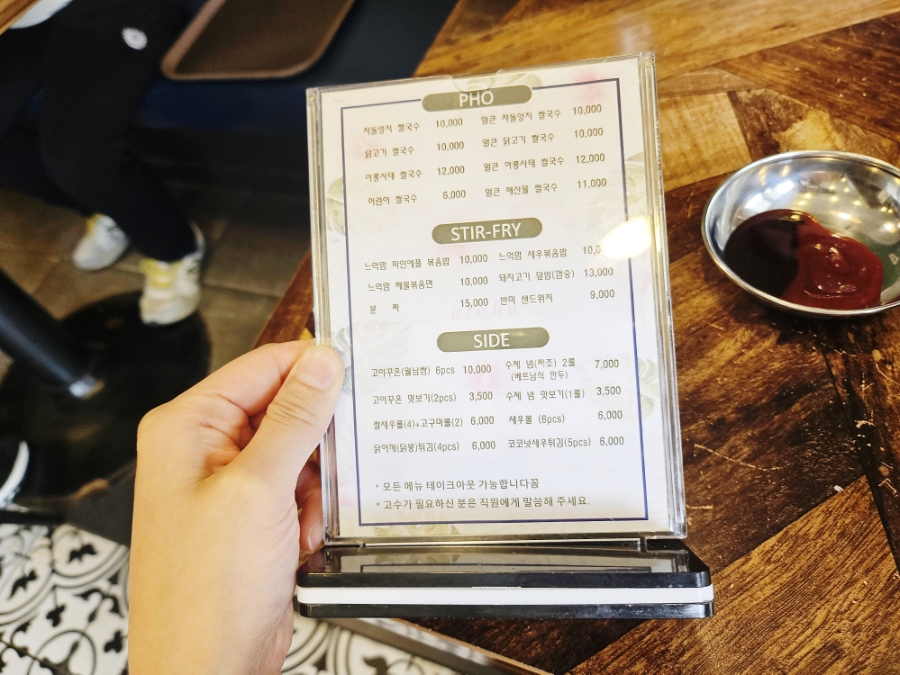 PHO
차돌양지 쌀국수 10,000 얼큰 차돌양지 쌀국수 10,000
닭고기 쌀국수 10,000 얼큰 닭고기 쌀국수 10,000
아롱사태 쌀국수 12,000 얼큰 아롱사태 쌀국수 12,000
어린이 쌀국수 6,000 얼큰 해산물 쌀국수 11,000
STIR-FRY
느억맘 파인애플 볶음밥 10,000 느억맘 새우볶음밥
느억맘 해물볶음면 10,000 돼지고기 덮밥(껌승) 13,000
분 짜 15,000 반미 샌드위치 9,000
SIDE
고이꾸온(월남쌈) 6pcs 10,000 수제 넴(짜조) 2롤 7,000
(베트남식 만두)
고이꾸온 맛보기(2pcs) 3,500 수제 넴 맛보기(1롤) 3,500
찰새우롤(4)+고구마롤(2) 6,000 새우볼 (6pcs) 6,000
닭어깨(닭봉)튀김(4pcs) 6,000 코코넛새우튀김(5pcs) 6,000
* 모든 메뉴 테이크아웃 가능합니다꼼
* 고수가 필요하신 분은 직원에게 말씀해 주세요.